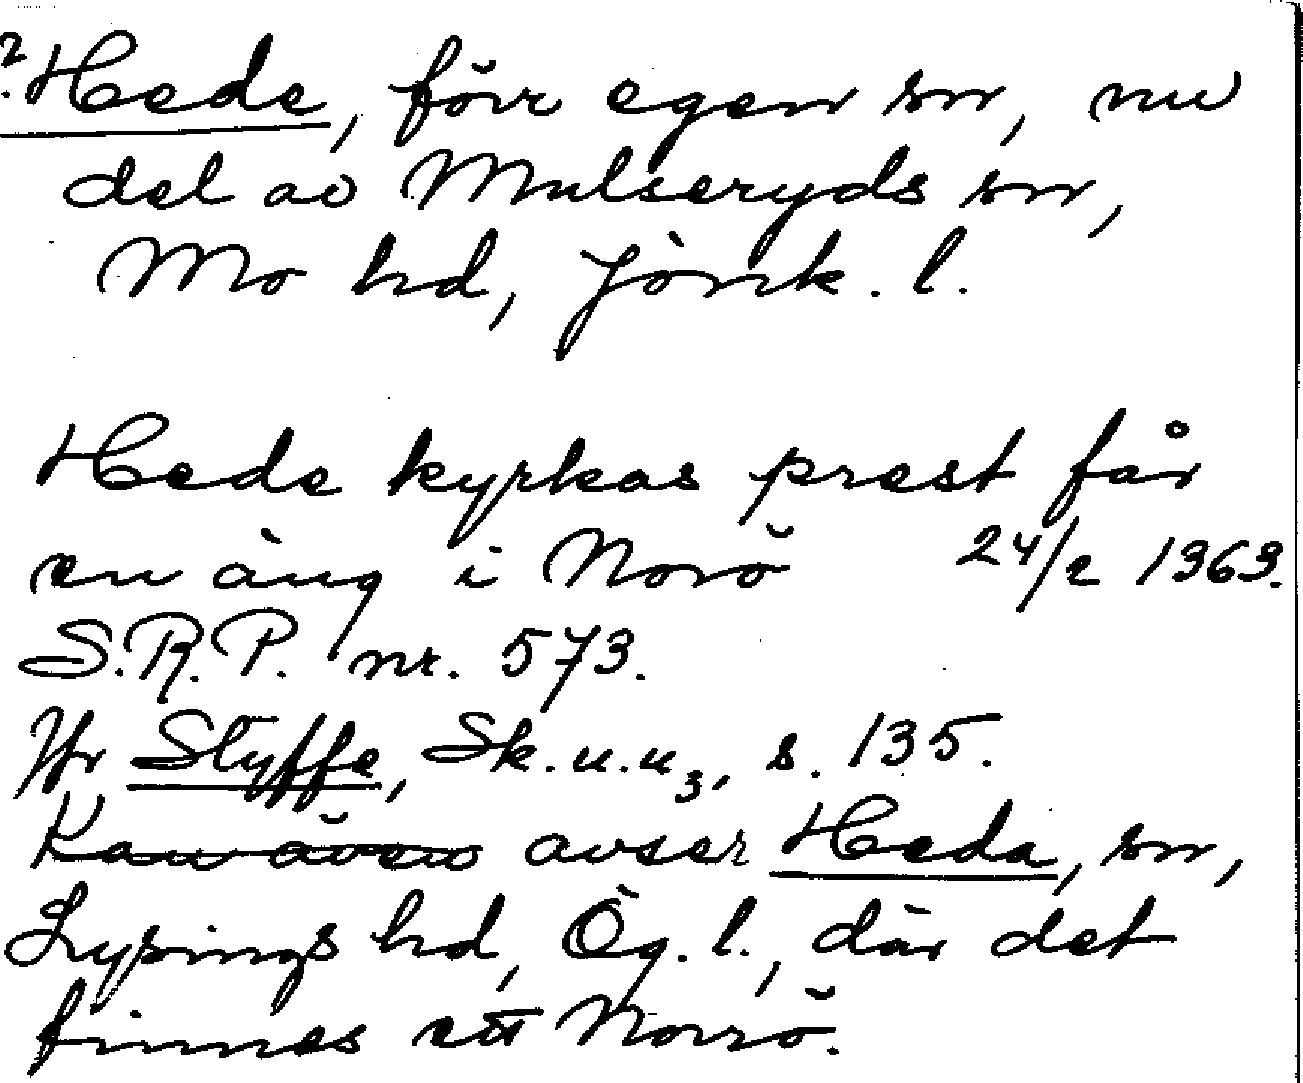 ? Hede, förr egen sn, nu
del av Mulseryds sn,
Mo hd, Jönk. l.
Hede kyrkas prest får
en äng i Norö 24/2 1363.
S.R.P. nr. 573.
Jfr Styffe, Sk.u.u3, s. 135.
Kan även avser Heda, sn,
Lysings hd, Ög. l., där det
finnes ett Norrö.